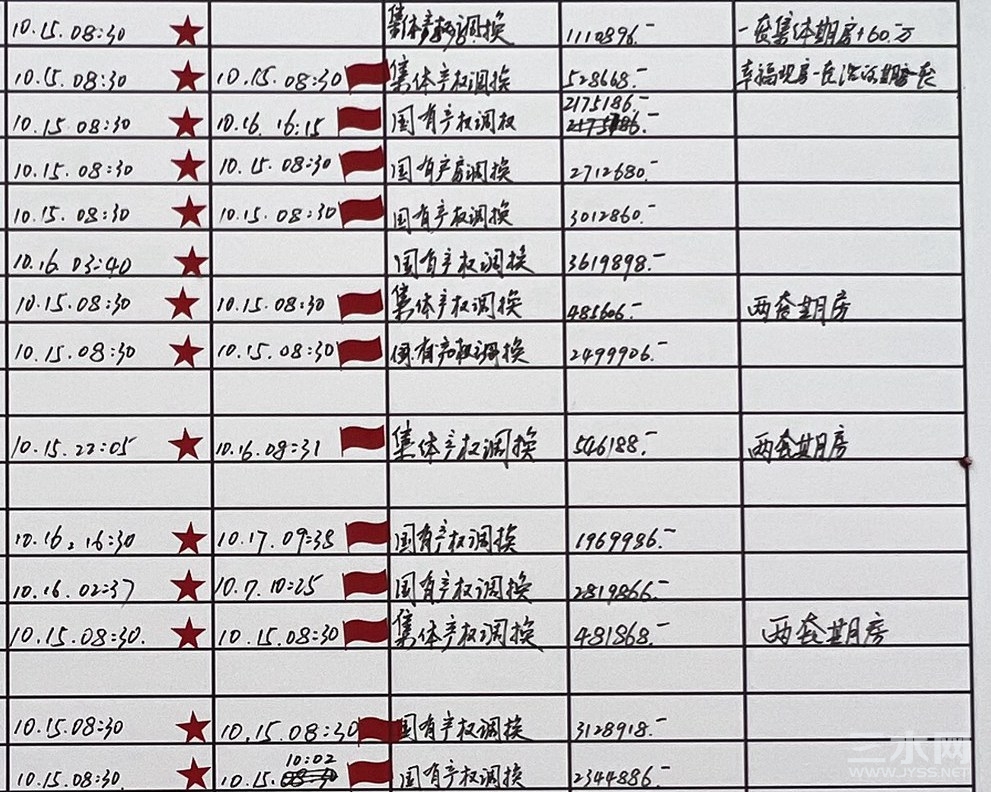 10.15.08:30 集体产权调换 1110896.- 一套集体期房+60.万
10.15.08:30 10.15.08:30 集体产权调换 528668.- 幸福现房一套 期房一套
2175186.-
10.15.08:30 10.16.16:15 国有产权调权
10.15.08:30 10.15.08:30 国有产房调换 2712680.-
10.15.08:30 10.15.08:30 国有产权调换 3012860.-
10.16.03:40 国有产权调换 3619898.-
10.15.08:30 10.15.08:30 集体产权调换 485606.- 两套期房
10.15.08:30 10.15.08:30 国有产权调换 2499906.-
10.15.22:05 10.16.08:31 集体产权调换 546188.- 两套期房
10.16.16:30 10.17.09:38 国有产权调换 1969986.-
10.16.02:37 10.7.10:25 国有产权调换 2819866.-
10.15.08:30. 10.15.08:30 集体产权调换 481868.- 两套期房
10.15.08:30 10.15.08:30 国有产权调换 3128918.-
10:02
10.15.08:30. 10.15. 国有产权调换 2344886.-
三水网
WWW.JYSS.NET